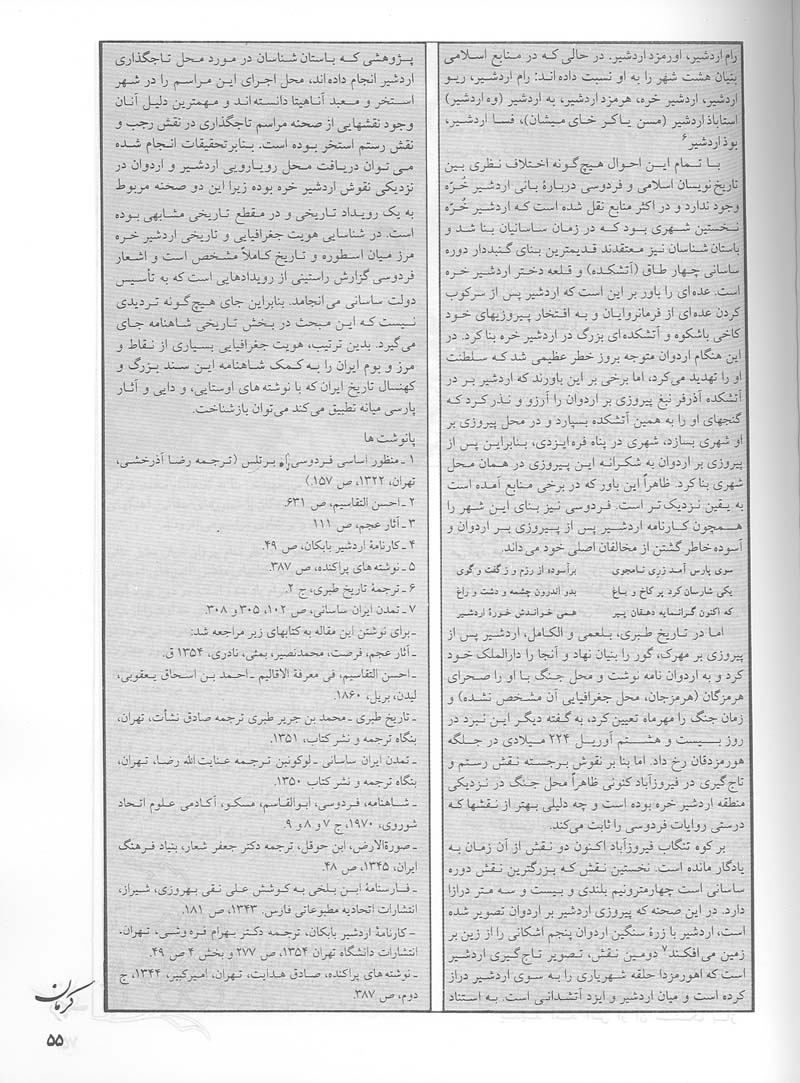 رام اردشیر، اورمزد اردشیر. در حالی که در منابع اسلامی
بنیان هشت شهر را به او نسبت داده‌اند: رام اردشیر، ریو
اردشیر، اردشیر خره، هرمزد اردشیر، به اردشیر (وه اردشیر)
استاباذ اردشیر (مسن یا کر خای میشان)، فسا اردشیر،
بوذ اردشیر۶
با تمام این احوال هیچ‌گونه اختلاف نظری بین
تاریخ‌نویسان اسلامی و فردوسی دربارهٔ بانی اردشیر خُرّه
وجود ندارد و در اکثر منابع نقل شده است که اردشیر خُرّه
نخستین شهری بود که در زمان ساسانیان بنا شد و
باستان شناسان نیز معتقدند قدیمترین بنای گنبددار دوره
ساسانی چهار طاق (آتشکده) و قلعه دختر اردشیر خره
است. عده‌ای را باور بر این است که اردشیر پس از سرکوب
کردن عده‌ای از فرمانروایان و به افتخار پیروزیهای خود
کاخی باشکوه و آتشکده‌ای بزرگ در اردشیر خره بنا کرد. در
این هنگام اردوان متوجه بروز خطر عظیمی شد که سلطنت
او را تهدید می‌کرد، اما برخی بر این باورند که اردشیر بر در
آتشکده آذرفر نبغ پیروزی بر اردوان را آرزو و نذر کرد که
گنجهای او را به همین آتشکده بسپارد و در محل پیروزی بر
او شهری بسازد، شهری در پناه فره ایزدی، بنابراین پس از
پیروزی بر اردوان به شکرانه این پیروزی در همان محل
شهری بنا کرد. ظاهراً این باور که در برخی منابع آمده است
به یقین نزدیک‌تر است. فردوسی نیز بنای این شهر را
همچون کارنامه اردشیر پس از پیروزی بر اردوان و
آسوده خاطر گشتن از مخالفان اصلی خود می داند.
سوی پارس آمد زری نامجوی برآسوده از رزم و ز گفت و گوی
یکی شارسان کرد پر کاخ و باغ بدو اندرون چشمه و دشت و راغ
که اکنون گرانمایه دهقان پیر همی خواندش خورهٔ اردشیر
اما در تاریخ طبری، بلعمی و الکامل، اردشیر پس از
پیروزی بر مهرک، گور را بنیان نهاد و آنجا را دارالملک خود
کرد و به اردوان نامه نوشت و محل جنگ با او را صحرای
هرمزگان (هرمزجان، محل جغرافیایی آن مشخص نشده) و
زمان جنگ را مهرماه تعیین کرد، به گفته دیگر این نبرد در
روز بیست و هشتم آوریل ۲۲۴ میلادی در جلگه
هورمزدقان رخ داد. اما بنا بر نقوش برجسته نقش رستم و
تاج گیری در فیروزآباد کنونی ظاهراً محل جنگ در نزدیکی
منطقه اردشیر خره بوده است و چه دلیلی بهتر از نقشها که
درستی روایات فردوسی را ثابت می‌کند.
بر کوه تنگاب فیروزآباد اکنون دو نقش از آن زمان به
یادگار مانده است. نخستین نقش که بزرگترین نقش دوره
ساسانی است چهارمترونیم بلندی و بیست و سه متر درازا
دارد. در این صحنه که پیروزی اردشیر بر اردوان تصویر شده
است، اردشیر با زرهٔ سنگین اردوان پنجم اشکانی را از زین بر
زمین می‌افکند۷ دومین نقش، تصویر تاج گیری اردشیر
است که اهورمزدا حلقه شهریاری را به سوی اردشیر دراز
کرده است و میان اردشیر و ایزد آتشدانی است. به استناد
پژوهشی که باستان شناسان در مورد محل تاجگذاری
اردشیر انجام داده‌اند، محل اجرای این مراسم را در شهر
استخر و معبد آناهیتا دانسته‌اند و مهمترین دلیل آنان
وجود نقشهایی از صحنه مراسم تاجگذاری در نقش رجب و
نقش رستم استخر بوده است. بنابر تحقیقات انجام شده
می توان دریافت محل رویارویی اردشیر و اردوان در
نزدیکی نقوش اردشیر خره بوده زیرا این دو صحنه مربوط
به یک رویداد تاریخی و در مقطع تاریخی مشابهی بوده
است. در شناسایی هویت جغرافیایی و تاریخی اردشیر خره
مرز میان اسطوره و تاریخ کاملاً مشخص است و اشعار
فردوسی گزارش راستینی از رویدادهایی است که به تأسیس
دولت ساسانی می‌انجامد. بنابراین جای هیچ‌گونه تردیدی
نیست که این مبحث در بخش تاریخی شاهنامه جای
می‌گیرد. بدین ترتیب، هویت جغرافیایی بسیاری از نقاط و
مرز و بوم ایران را به کمک شاهنامه این سند بزرگ و
کهنسال تاریخ ایران که با نوشته‌های اوستایی، ودایی و آثار
پارسی میانه تطبیق می‌کند می‌توان بازشناخت.
پانوشت ها
۱ ـ منظور اساسی فردوسی برتلس (ترجمه رضا آذرخشی،
تهران، ۱۳۲۲، ص ۱۵۷.)
۲ ـ احسن التقاسیم، ص ۶۳۱.
۳ ـ آثار عجم، ص ۱۱۱
۴ ـ کارنامهٔ اردشیر بابکان، ص ۴۹.
۵ ـ نوشته‌های پراکنده، ص ۳۸۷.
۶ ـ ترجمهٔ تاریخ طبری، ج ۲.
۷ ـ تمدن ایران ساسانی، ص ۱۰۲، ۳۰۵ و ۳۰۸.
ـ برای نوشتن این مقاله به کتابهای زیر مراجعه شد:
ـ آثار عجم، فرصت، محمدنصیر، بمئی، نادری، ۱۳۵۴ ق.
ـ احسن التقاسیم، فی معرفة الاقالیم ـ احمد بن اسحاق یعقوبی،
لیدن، بریل، ۱۸۶۰.
ـ تاریخ طبری ـ محمد بن جریر طبری ترجمه صادق نشأت، تهران،
بنگاه ترجمه و نشر کتاب، ۱۳۵۱.
ـ تمدن ایران ساسانی ـ لوکونین ترجمه عنایت‌الله رضا، تهران،
بنگاه ترجمه و نشر کتاب ۱۳۵۰.
ـ شاهنامه، فردوسی، ابوالقاسم، مسکو، آکادمی علوم اتحاد
شوروی، ۱۹۷۰، ج ۷ و ۸ و ۹.
ـ صورةالارض، ابن حوقل، ترجمه دکتر جعفر شعار، بنیاد فرهنگ
ایران، ۱۳۴۵، ص ۴۸.
ـ فارسنامهٔ ابن بلخی به کوشش علی نقی بهروزی، شیراز،
انتشارات اتحادیه مطبوعاتی فارس. ۱۳۴۳، ص ۱۸۱.
ـ کارنامهٔ اردشیر بابکان، ترجمه دکتر بهرام فره وشی، تهران،
انتشارات دانشگاه تهران ۱۳۵۴، ص ۲۷۷ و بخش ۴ ص ۴۹.
ـ نوشته‌های پراکنده، صادق هدایت، تهران، امیرکبیر، ۱۳۴۴، ج
دوم، ص ۳۸۷.
کرمان
۵۵